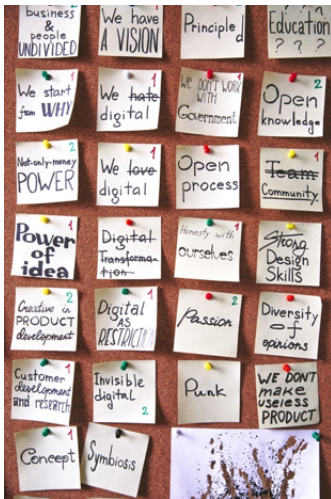 business
&
people
UNDIVIDED
We have
A VISION
Principle
Education
? ? ?
1
We start
from WHY
1
We hate
digital
1
We DON'T WORK
WITH
Government
2
Open
knowledge
2
Not-only-money
POWER
1
We love
digital
Open
process
1
Team
Community
1
Power
of
idea
Digital
Transforma-
tion
1
Honesty with
ourselves
Strong
Design
Skills
2
Creative in
PRODUCT
development
1
Digital
AS
RESTRICTION
2
Passion
2
Diversity
of
opinions
1
Customer
development
and research
Invisible
digital
2
Punk
WE DON'T
make
useless
PRODUCT
1
Concept
Symbiosis